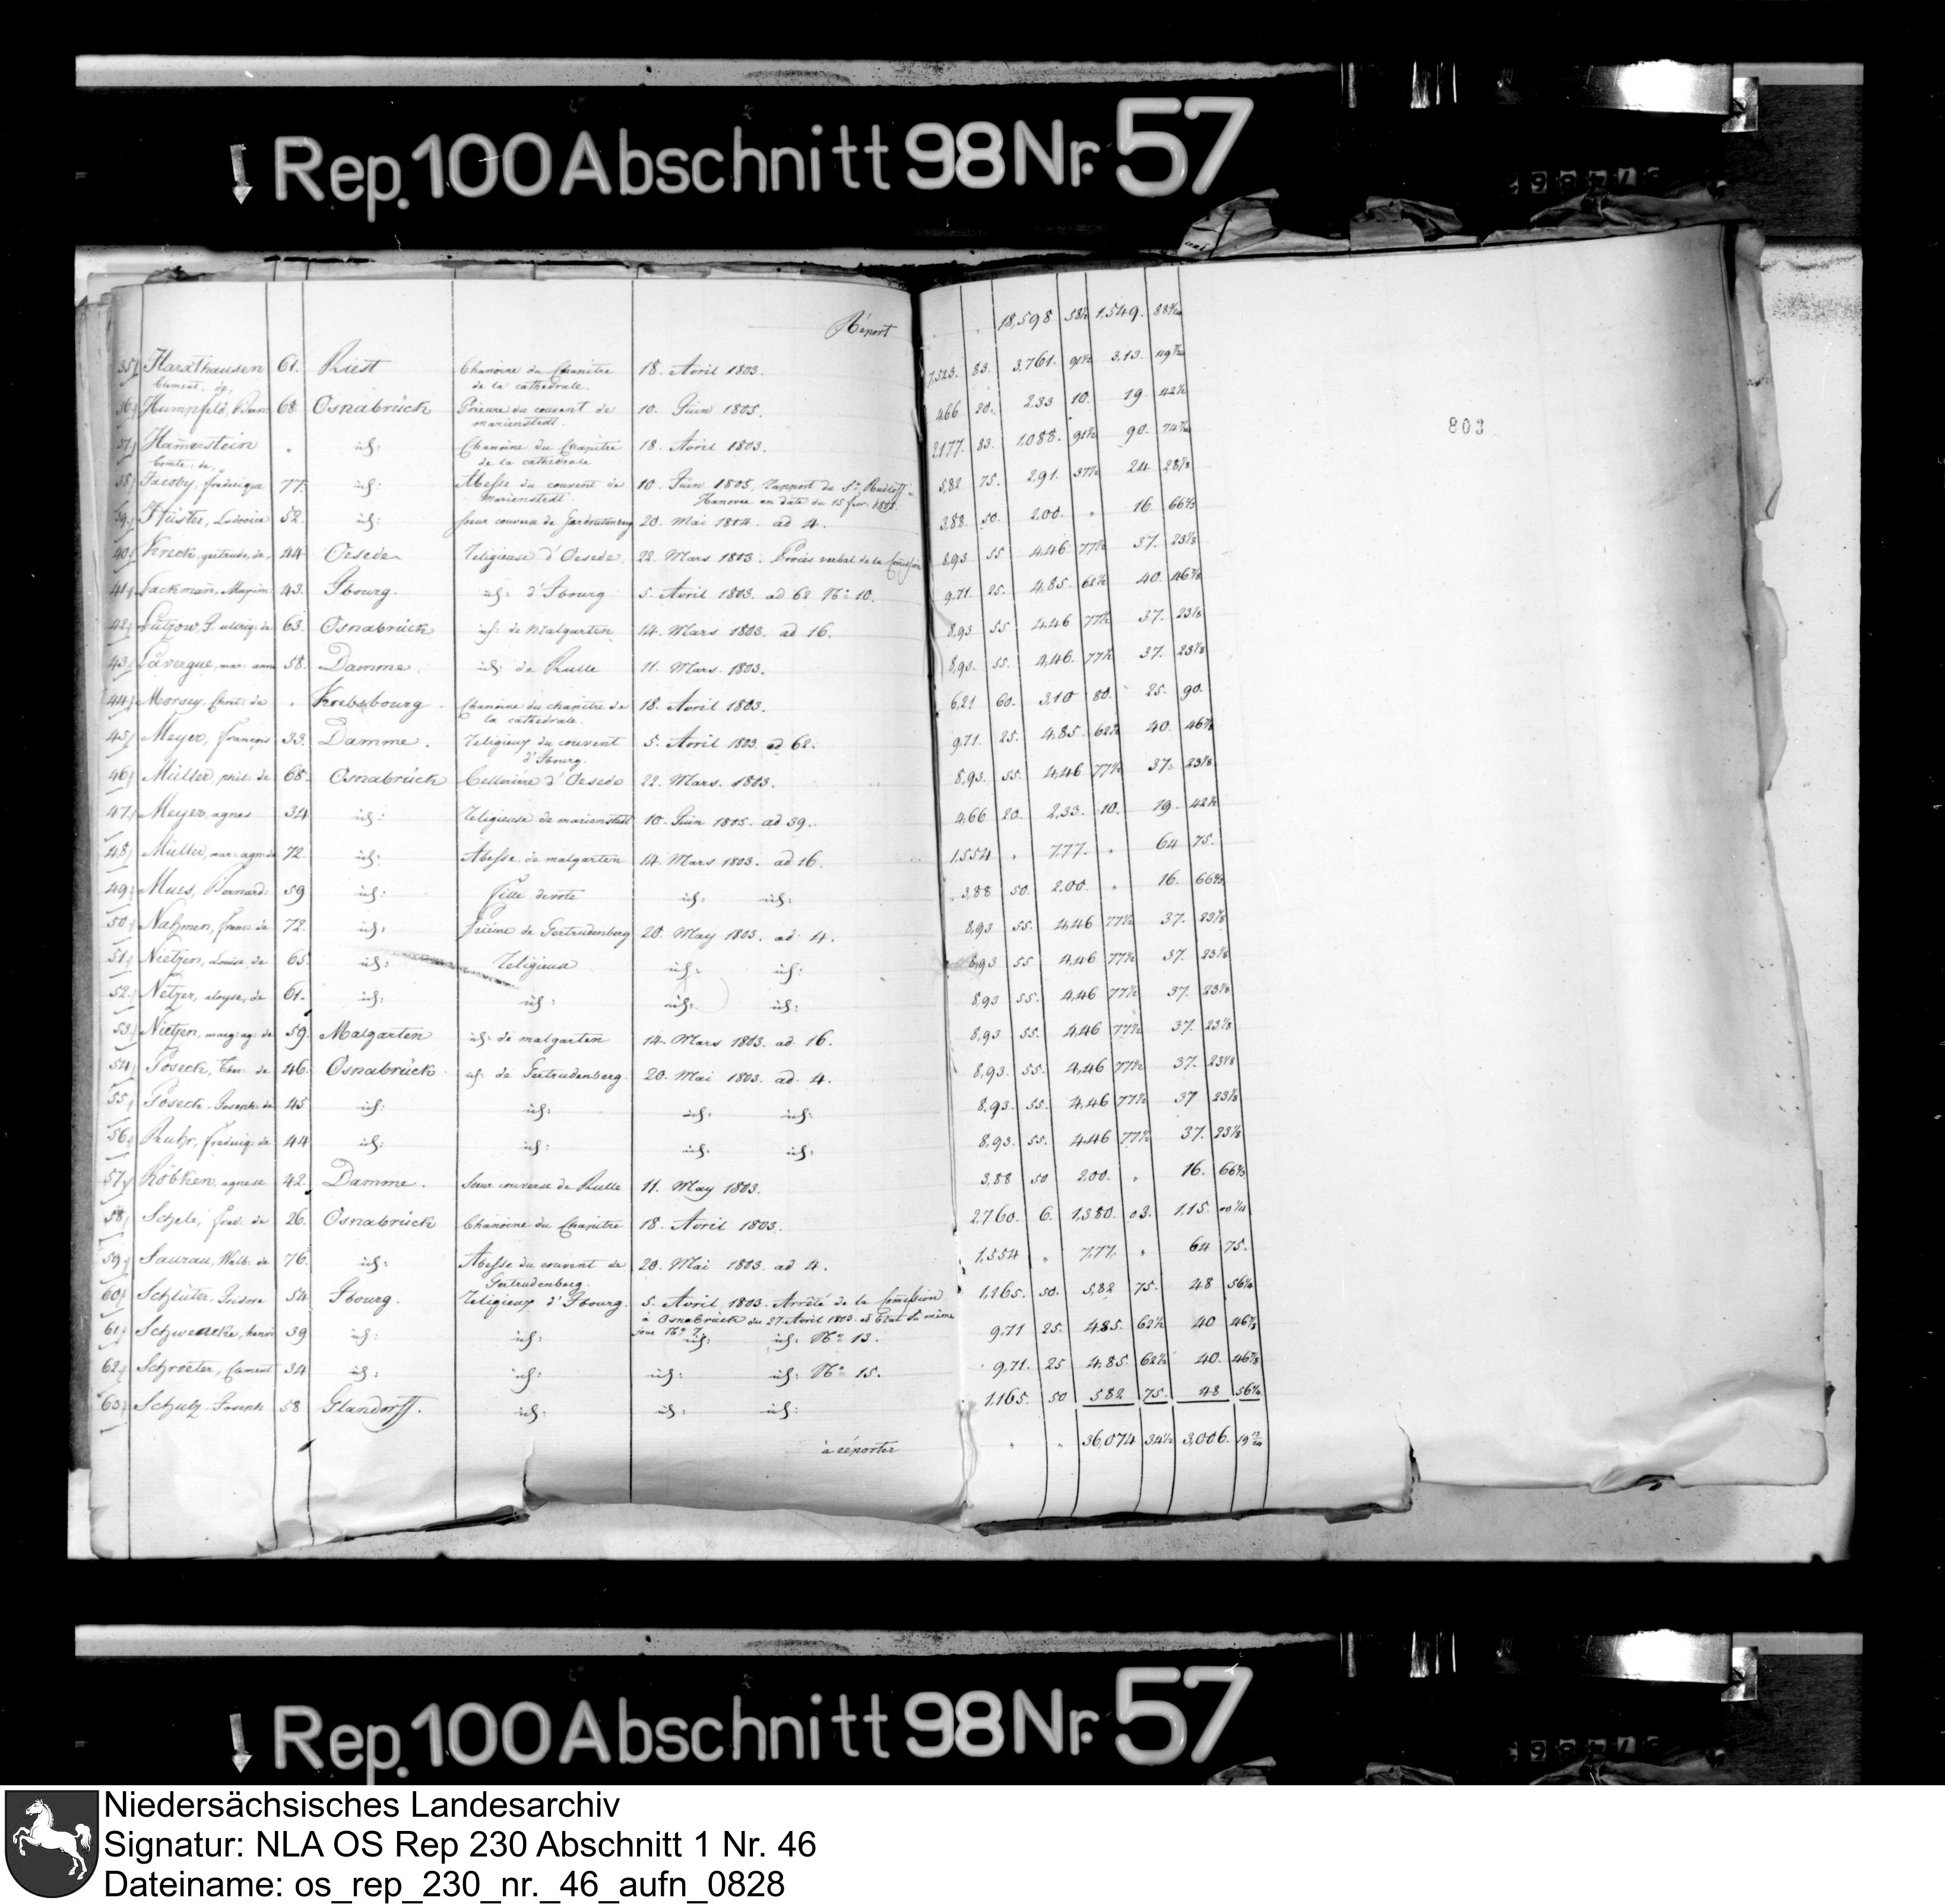 Rep. 100 Abschnitt 98 Nr. 57
Réport 18,598 58½ 1,549. 88
35 Haxthausen 61. Riest Chanoine du Chapitre 18. Avril 1803. 7,523. 83. 3,761. 91½ 313.
Clement, de, de la cathedrale.
36 Humpfeld, 68 Osnabrück Prieure du couvent de 10. Juin 1805. 466 20. 233 10. 19 42½
marienstedt.
37 Ham̄erstein " id: Chanoine du Chapitre 18. Avril 1803. 2177. 83. 1,088. 91½ 90.
Comte, de, de la cathedrale
803
38 Jacoby, frederique 77. id: Abesse du couvent de 10. Juin 1805, rapport du Sr. Rudloff à 582 75. 291. 37½ 24
Marienstedt Hanovre en date du 15 fevr. 1805.
39. Hüster, Ludovice 52. id: soeur converse de Gerdrutenberg 20. Mai 1814. ad 4. 388. 50. 200. " 16. 66⅔
40 Kreck, gertrude, de, 44 Oesede Religieuse d'Oesede 22 Mars 1803. Procès verbal de la Com̄ission 893 55 446 77½ 37. 23⅛
41 Lackman̄, Maxim. 43. Jbourg. id: d'Jbourg 5. Avril 1803. ad 62 No. 10. 971. 25. 485. 62½ 40. 46⅞
42 Lützow, de 63. Osnabrück id: de Malgarten 14. Mars 1803. ad 16. 893 55 446 77½ 37. 23⅛
43 Lavergue, mar: anne 58. Damme. id: de Rulle 11. Mars. 1803. 893. 55. 446. 77½ 37. 23⅛
44 Morsey, de " Krebsbourg. Chanoine du chapitre de 18. Avril 1803. 621 60. 310 80. 25. 90.
la cathedrale.
45 Meyer, François 33. Damme. Religieux du couvent 5. Avril 1803. ad 62. 971. 25. 485. 62½ 40. 46⅞
d'Jbourg.
46 Müller, phil: de 68. Osnabrück Cellerière d'Oesede 22. Mars. 1803. 893. 55. 446 77½ 37. 23⅛
47 Meyer, agnes 34 id: Religieuse de marienstedt 10. Juin 1805. ad 39. 466 20. 233. 10. 19. 42½
48 Müller, mar: agn: de 72. id: Abesse de malgarten 14. Mars 1803. ad 16. 1,554 " 777. " 64 75.
49 Mues, Bernard: 59 id: Fille devote id: id: 388 50. 200. " 16. 66⅔
50 Nahmen, franc: de 72. id: Prieure de Gertrudenberg 20. May 1803. ad. 4. 893 55. 446 77½ 37. 23⅛
51 Nietzen, Louise, de 65 id: Religieuse id: id: 893 55 446 77½ 37. 23⅛
52. Netzer, aloyse, de 61. id: id: id: id: 893 55. 446 77½ 37. 23⅛
53 Nietzen, marg: ag: de 59. Malgarten id: de malgarten 14. Mars 1803. ad. 16. 893 55. 446 77½ 37. 23⅛
54 Poseck, Ther: de 46. Osnabrück id: de Gertrudenberg. 20. Mai 1803. ad. 4. 893. 55. 446 77½ 37. 23⅛
55 Poseck, Joseph: de 45 id: id: id: id: 893. 55. 446 77½ 37 23⅛
56 Ruhr, frederiq: de 44 id: id: id: id: 893. 55. 446 77½ 37. 23⅛
57 Röbken, agnese 42. Damme. Soeur converse de Rulle 11. May 1803. 388 50 200. " 16. 66⅔
58 Schele, fred: de 26. Osnabrück Chanoine du Chapitre 18. Avril 1803. 2760. 6. 1,380. 03. 115.
59 Saurau, Walb: de 76. id: Abesse du couvent de 20. Mai 1803. ad 4. 1,554 " 777. " 64 75.
Gertrudenberg.
60 Schlüter, Jsidore 54 Jbourg. Religieux d'Jbourg. 5. Avril 1803. Arrêté de la Com̄ission 1,165. 50. 582 75. 48 56¼
à Osnabrück du 27 Avril 1803. et Etat du même
jour No. 7.
61 Schwencke, henri 39 id: id: id: id: No. 13. 971 25. 485. 62½ 40 46⅞
62 Schroeter, Clement 34 id: id: id: id: No. 15. 971. 25 485. 62½ 40. 46⅞
63 Schulz, Joseph 58 Glandorff. id: id: id: 1165. 50 582 75. 48 56¼
à réporter " " 36,074 34½ 3,006. 19
Rep. 100 Abschnitt 98 Nr. 57
Niedersächsisches Landesarchiv
Signatur: NLA OS Rep 230 Abschnitt 1 Nr. 46
Dateiname: os_rep_230_nr._46_aufn_0828